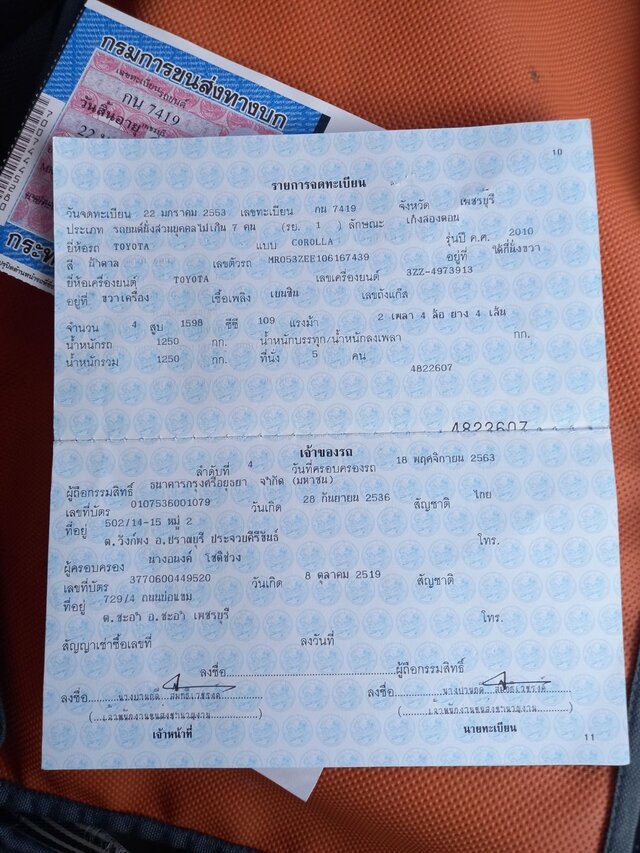 กรมการขนส่งทางบก
เลขทะเบียนรถยนต์
กน 7419
เพชรบุรี
วันสิ้นอายุ
22
10
รายการจดทะเบียน
วันจดทะเบียน 22 มกราคม 2553 เลขทะเบียน กน 7419 จังหวัด เพชรบุรี
ประเภท รถยนต์นั่งส่วนบุคคลไม่เกิน 7 คน (รย. 1) ลักษณะ เก๋งสองตอน
ยี่ห้อรถ TOYOTA แบบ COROLLA รุ่นปี ค.ศ. 2010
สี น้ำตาล เลขตัวรถ MR053ZEE106167439 อยู่ที่ ใต้ที่นั่งขวา
ยี่ห้อเครื่องยนต์ TOYOTA เลขเครื่องยนต์ 3ZZ-4973913
อยู่ที่ ขวาเครื่อง เชื้อเพลิง เบนซิน เลขถังแก๊ส
จำนวน 4 สูบ 1598 ซีซี 109 แรงม้า 2 เพลา 4 ล้อ ยาง 4 เส้น
น้ำหนักรถ 1250 กก. น้ำหนักบรรทุก/น้ำหนักลงเพลา กก.
น้ำหนักรวม 1250 กก. ที่นั่ง 5 คน
4822607
4822607
เจ้าของรถ
ลำดับที่ 4 วันที่ครอบครองรถ 18 พฤศจิกายน 2563
ผู้ถือกรรมสิทธิ์ ธนาคารกรุงศรีอยุธยา จำกัด (มหาชน)
เลขที่บัตร 0107536001079 วันเกิด 28 กันยายน 2536 สัญชาติ ไทย
ที่อยู่ 502/14-15 หมู่ 2
ต.วังก์พง อ.ปราณบุรี ประจวบคีรีขันธ์ โทร.
ผู้ครอบครอง นางอนงค์ โชติช่วง
เลขที่บัตร 3770600449520 วันเกิด 8 ตุลาคม 2519 สัญชาติ
ที่อยู่ 729/4 ถนนบ่อแขม
ต.ชะอำ อ.ชะอำ เพชรบุรี โทร.
สัญญาเช่าซื้อเลขที่ ลงวันที่
ลงชื่อ ผู้ถือกรรมสิทธิ์
ลงชื่อ ลงชื่อ
(เจ้าพนักงานขนส่งชำนาญงาน) (เจ้าพนักงานขนส่งชำนาญงาน)
เจ้าหน้าที่ นายทะเบียน
11